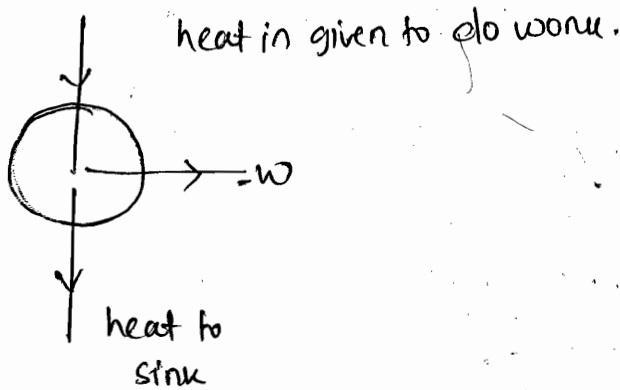 heat in given to do work.
-W
heat to
sink